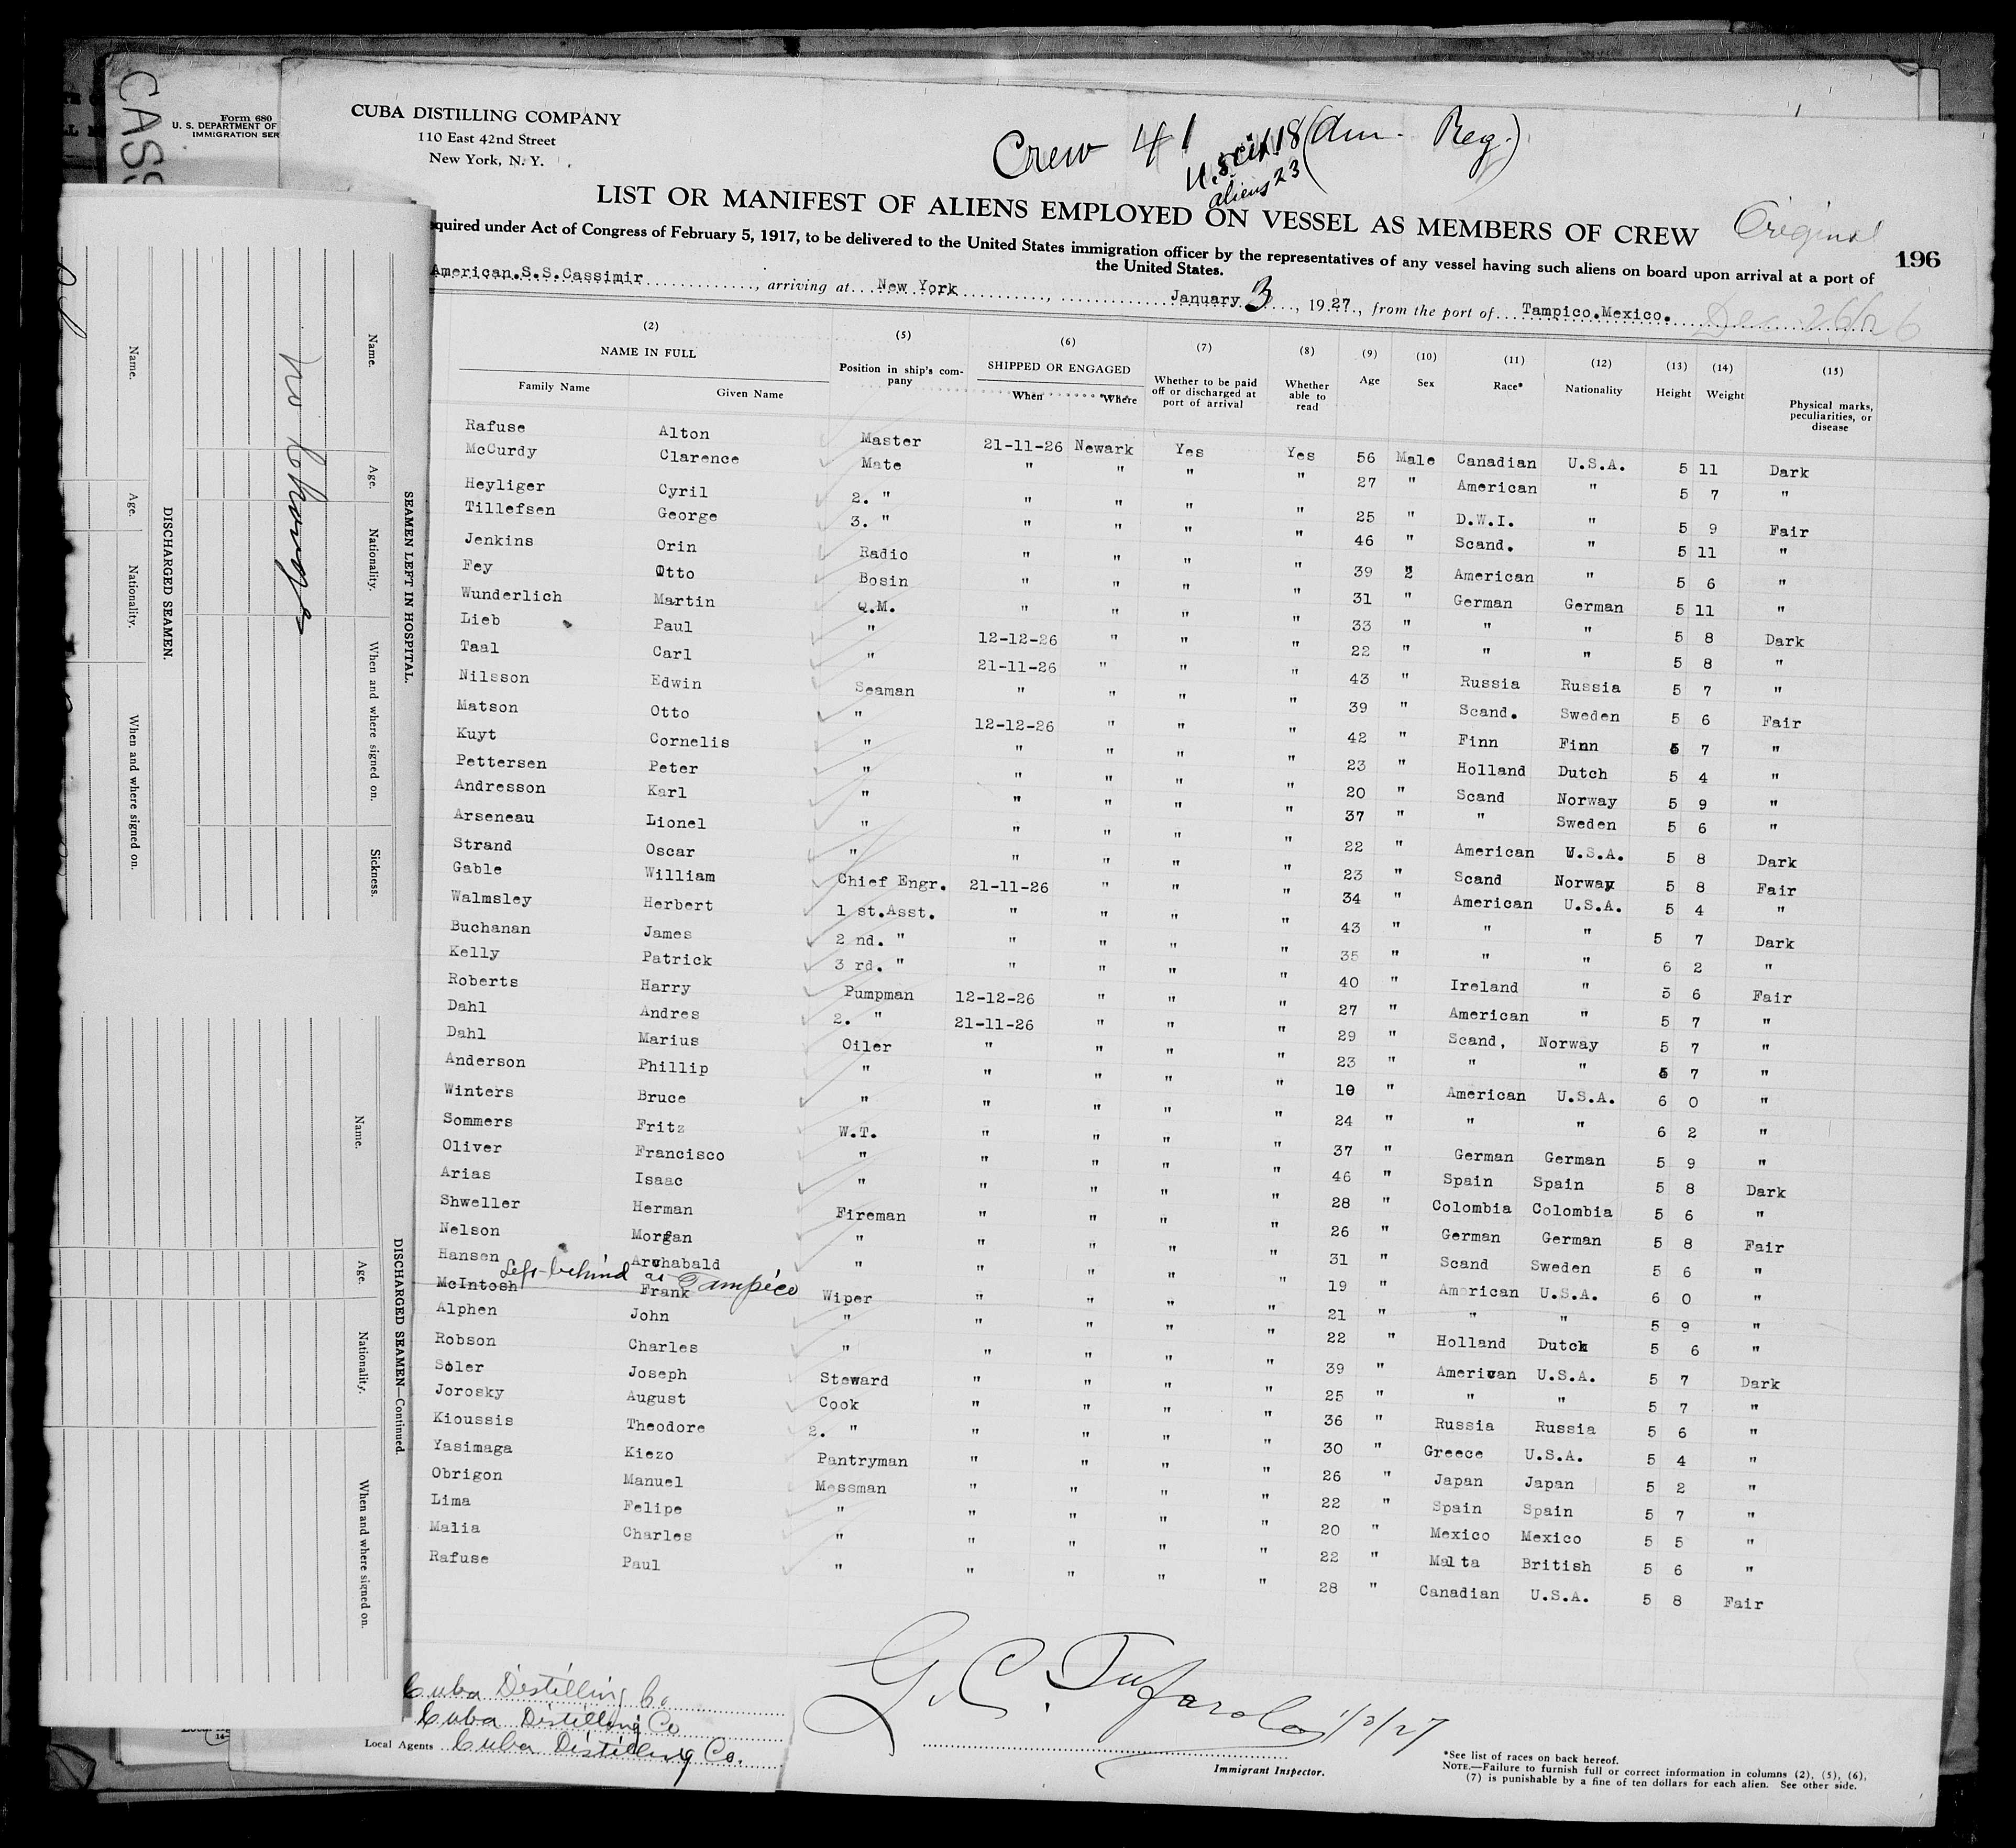 CASS
Form 680
U. S. DEPARTMENT OF
IMMIGRATION SER
CUBA DISTILLING COMPANY
110 East 42nd Street
New York, N. Y.
Crew 41
U.S Cit 18 (Am. Reg.)
aliens 23
LIST OR MANIFEST OF ALIENS EMPLOYED ON VESSEL AS MEMBERS OF CREW
Original
196
quired under Act of Congress of February 5, 1917, to be delivered to the United States immigration officer by the representatives of any vessel having such aliens on board upon arrival at a port of
the United States.
American.S.S.Cassimir, arriving at New York, January 3, 1927, from the port of Tampico.Mexico. Dec 26/26
(2) (5) (6) (7) (8) (9) (10) (11) (12) (13) (14) (15)
NAME IN FULL
Family Name Given Name
Position in ship's company
SHIPPED OR ENGAGED
When Where
Whether to be paid off or discharged at port of arrival
Whether able to read
Age Sex Race* Nationality Height Weight
Physical marks, peculiarities, or disease
Rafuse Alton Master 21-11-26 Newark Yes Yes 56 Male Canadian U.S.A. 5 11 Dark
McCurdy Clarence Mate " " " " 27 " American " 5 7 "
Heyliger Cyril 2. " " " " " 25 " D.W.I. " 5 9 Fair
Tillefsen George 3. " " " " " 46 " Scand. " 5 11 "
Jenkins Orin Radio " " " " 39 " American " 5 6 "
Fey Otto Bosin " " " " 31 " German German 5 11 "
Wunderlich Martin Q.M. " " " " 33 " " " 5 8 Dark
Lieb Paul " 12-12-26 " " " 22 " " " 5 8 "
Taal Carl " 21-11-26 " " " 43 " Russia Russia 5 7 "
Nilsson Edwin Seaman " " " " 39 " Scand. Sweden 5 6 Fair
Matson Otto " 12-12-26 " " " 42 " Finn Finn 5 7 "
Kuyt Cornelis " " " " " 23 " Holland Dutch 5 4 "
Pettersen Peter " " " " " 20 " Scand Norway 5 9 "
Andresson Karl " " " " " 37 " " Sweden 5 6 "
Arseneau Lionel " " " " " 22 " American U.S.A. 5 8 Dark
Strand Oscar " " " " " 23 " Scand Norway 5 8 Fair
Gable William Chief Engr. 21-11-26 " " " 34 " American U.S.A. 5 4 "
Walmsley Herbert 1 st.Asst. " " " " 43 " " " 5 7 Dark
Buchanan James 2 nd. " " " " " 35 " " " 6 2 "
Kelly Patrick 3 rd. " " " " " 40 " Ireland " 5 6 Fair
Roberts Harry Pumpman 12-12-26 " " " 27 " American " 5 7 "
Dahl Andres 2. " 21-11-26 " " " 29 " Scand, Norway 5 7 "
Dahl Marius Oiler " " " " 23 " " " 5 7 "
Anderson Phillip " " " " " " American U.S.A. 6 0 "
Winters Bruce " " " " " 24 " " " 6 2 "
Sommers Fritz W.T. " " " " 37 " German German 5 9 "
Oliver Francisco " " " " " 46 " Spain Spain 5 8 Dark
Arias Isaac " " " " " 28 " Colombia Colombia 5 6 "
Shweller Herman Fireman " " " " 26 " German German 5 8 Fair
Nelson Morgan " " " " " 31 " Scand Sweden 5 6 "
Hansen Archabald " " " " " 19 " American U.S.A. 6 0 "
Left behind at Tampico
McIntosh Frank Wiper " " " " 21 " " " 5 9 "
Alphen John " " " " " 22 " Holland Dutch 5 6 "
Robson Charles " " " " " 39 " American U.S.A. 5 7 Dark
Soler Joseph Steward " " " " 25 " " " 5 7 "
Jorosky August Cook " " " " 36 " Russia Russia 5 6 "
Kioussis Theodore 2. " " " " " 30 " Greece U.S.A. 5 4 "
Yasimaga Kiezo Pantryman " " " " 26 " Japan Japan 5 2 "
Obrigon Manuel Messman " " " " 22 " Spain Spain 5 7 "
Lima Felipe " " " " " 20 " Mexico Mexico 5 5 "
Malia Charles " " " " " 22 " Malta British 5 6 "
Rafuse Paul " " " " " 28 " Canadian U.S.A. 5 8 Fair
Cuba Distilling Co
Cuba Distilling Co
Local Agents Cuba Distilling Co.
1/3/27
Immigrant Inspector.
*See list of races on back hereof.
NOTE.—Failure to furnish full or correct information in columns (2), (5), (6),
(7) is punishable by a fine of ten dollars for each alien. See other side.
SEAMEN LEFT IN HOSPITAL.
Name. Age. Nationality. When and where signed on. Sickness.
No Changes
DISCHARGED SEAMEN.
Name. Age. Nationality. When and where signed on.
DISCHARGED SEAMEN—Continued.
Name. Age. Nationality. When and where signed on.